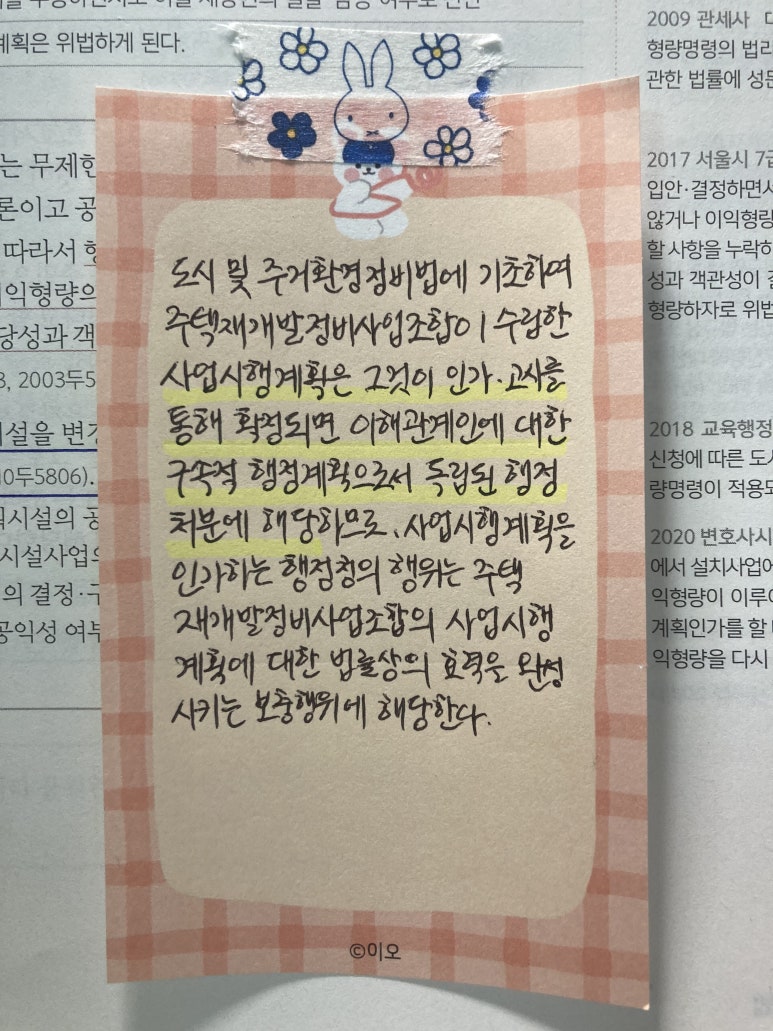 계획은 위법하게 된다.
는 무제한
론이고 공
따라서 형
익형량의
당성과 객
3, 2003두5
시설을 변경
10두5806).
시설의 공
시설사업의
의 결정·구
공익성 여부
도시 및 주거환경정비법에 기초하여
주택재개발정비사업조합이 수립한
사업시행계획은 그것이 인가·고시를
통해 확정되면 이해관계인에 대한
구속적 행정계획으로서 독립된 행정
처분에 해당하므로, 사업시행계획을
인가하는 행정청의 행위는 주택
재개발정비사업조합의 사업시행
계획에 대한 법률상의 효력을 완성
시키는 보충행위에 해당한다.
©이오
2009 관세사
형량명령의 법리
관한 법률에 성문
2017 서울시 7급
입안·결정하면서
않거나 이익형량
할 사항을 누락하
성과 객관성이 결
형량하자로 위법
2018 교육행정
신청에 따른 도시
량명령이 적용되
2020 변호사시
에서 설치사업에
익형량이 이루어
계획인가를 할 때
익형량을 다시